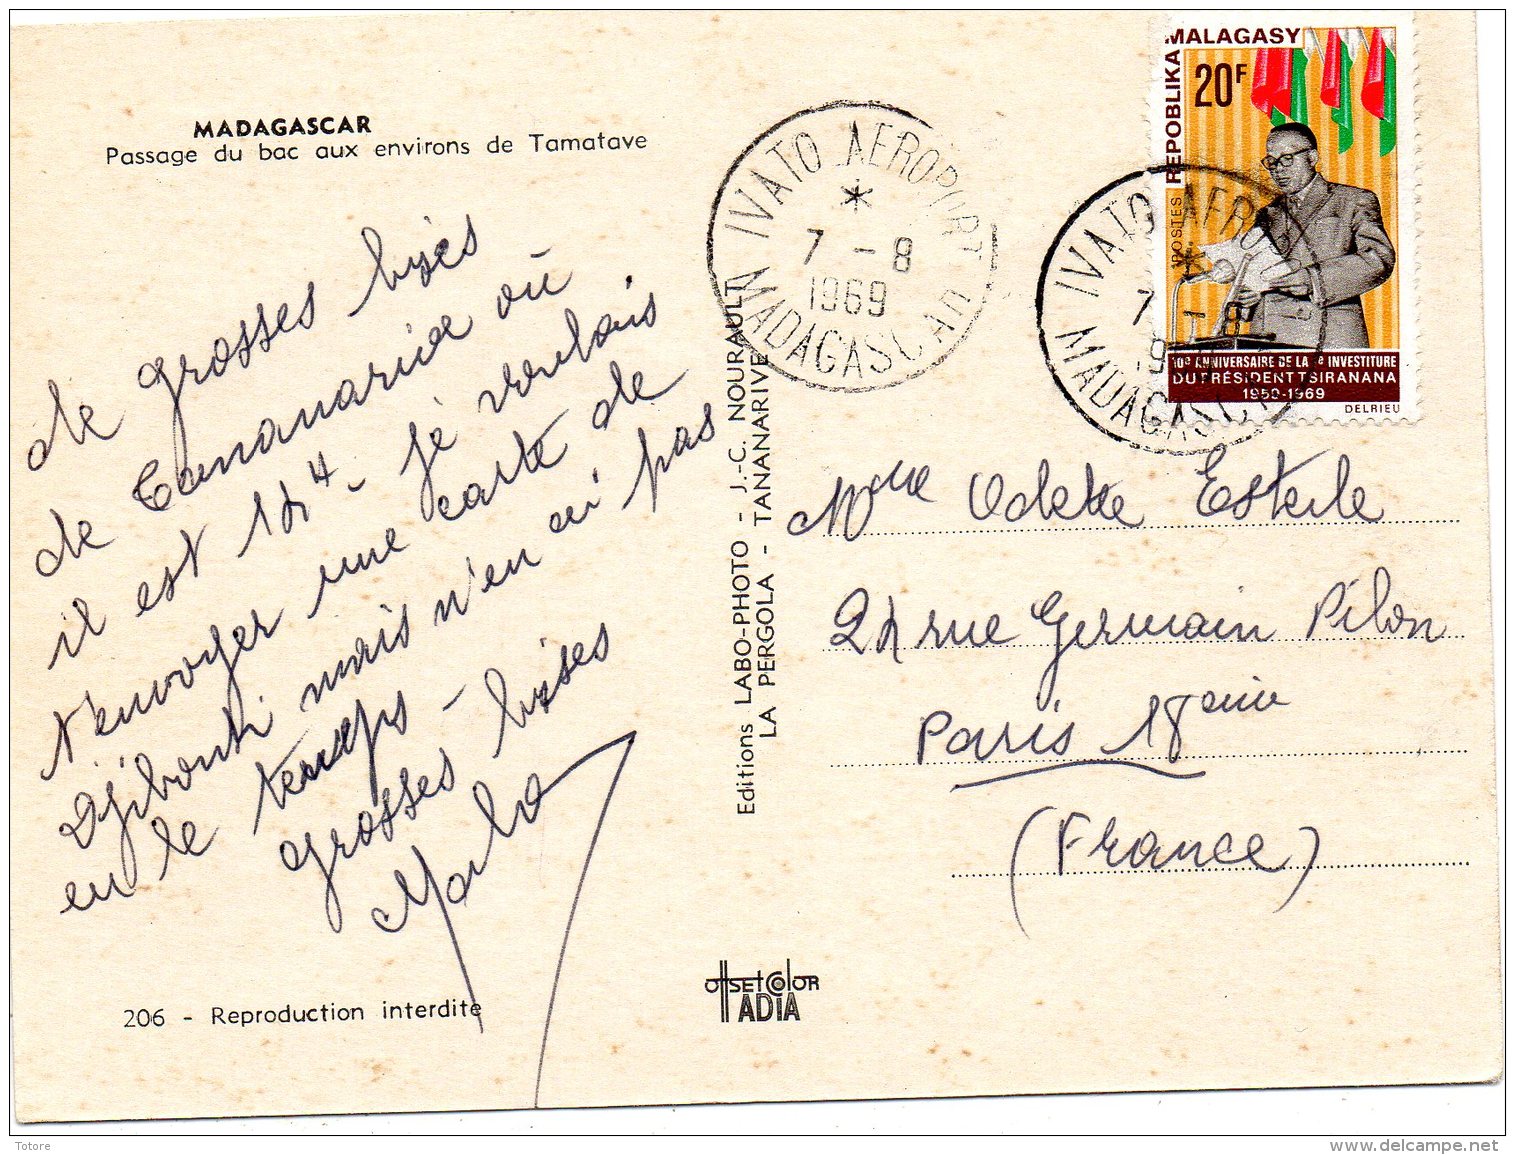 MADAGASCAR
Passage du bac aux environs de Tamatave
de grosses bises
de Tananarive où
il est 14H - je voulais
t'envoyer une carte de
Djibouti mais n'en ai pas
eu le temps -
grosses bises
206 - Reproduction interdite
Editions LABO-PHOTO - J.-C. NOURAULT
LA PERGOLA - TANANARIVE
OFFSET COLOR
ADIA
IVATO AEROPORT
7 - 8
1969
MADAGASCAR
REPOBLIKA MALAGASY
20F
POSTES
10e ANNIVERSAIRE DE LA 1e INVESTITURE
DU PRÉSIDENT TSIRANANA
1959-1969
DELRIEU
IVATO AEROPORT
7 - 8
MADAGASCAR
Mme Odette Esterle
24 rue Germain Pilon
Paris 18eme
(France)
Totore
delcampe.net